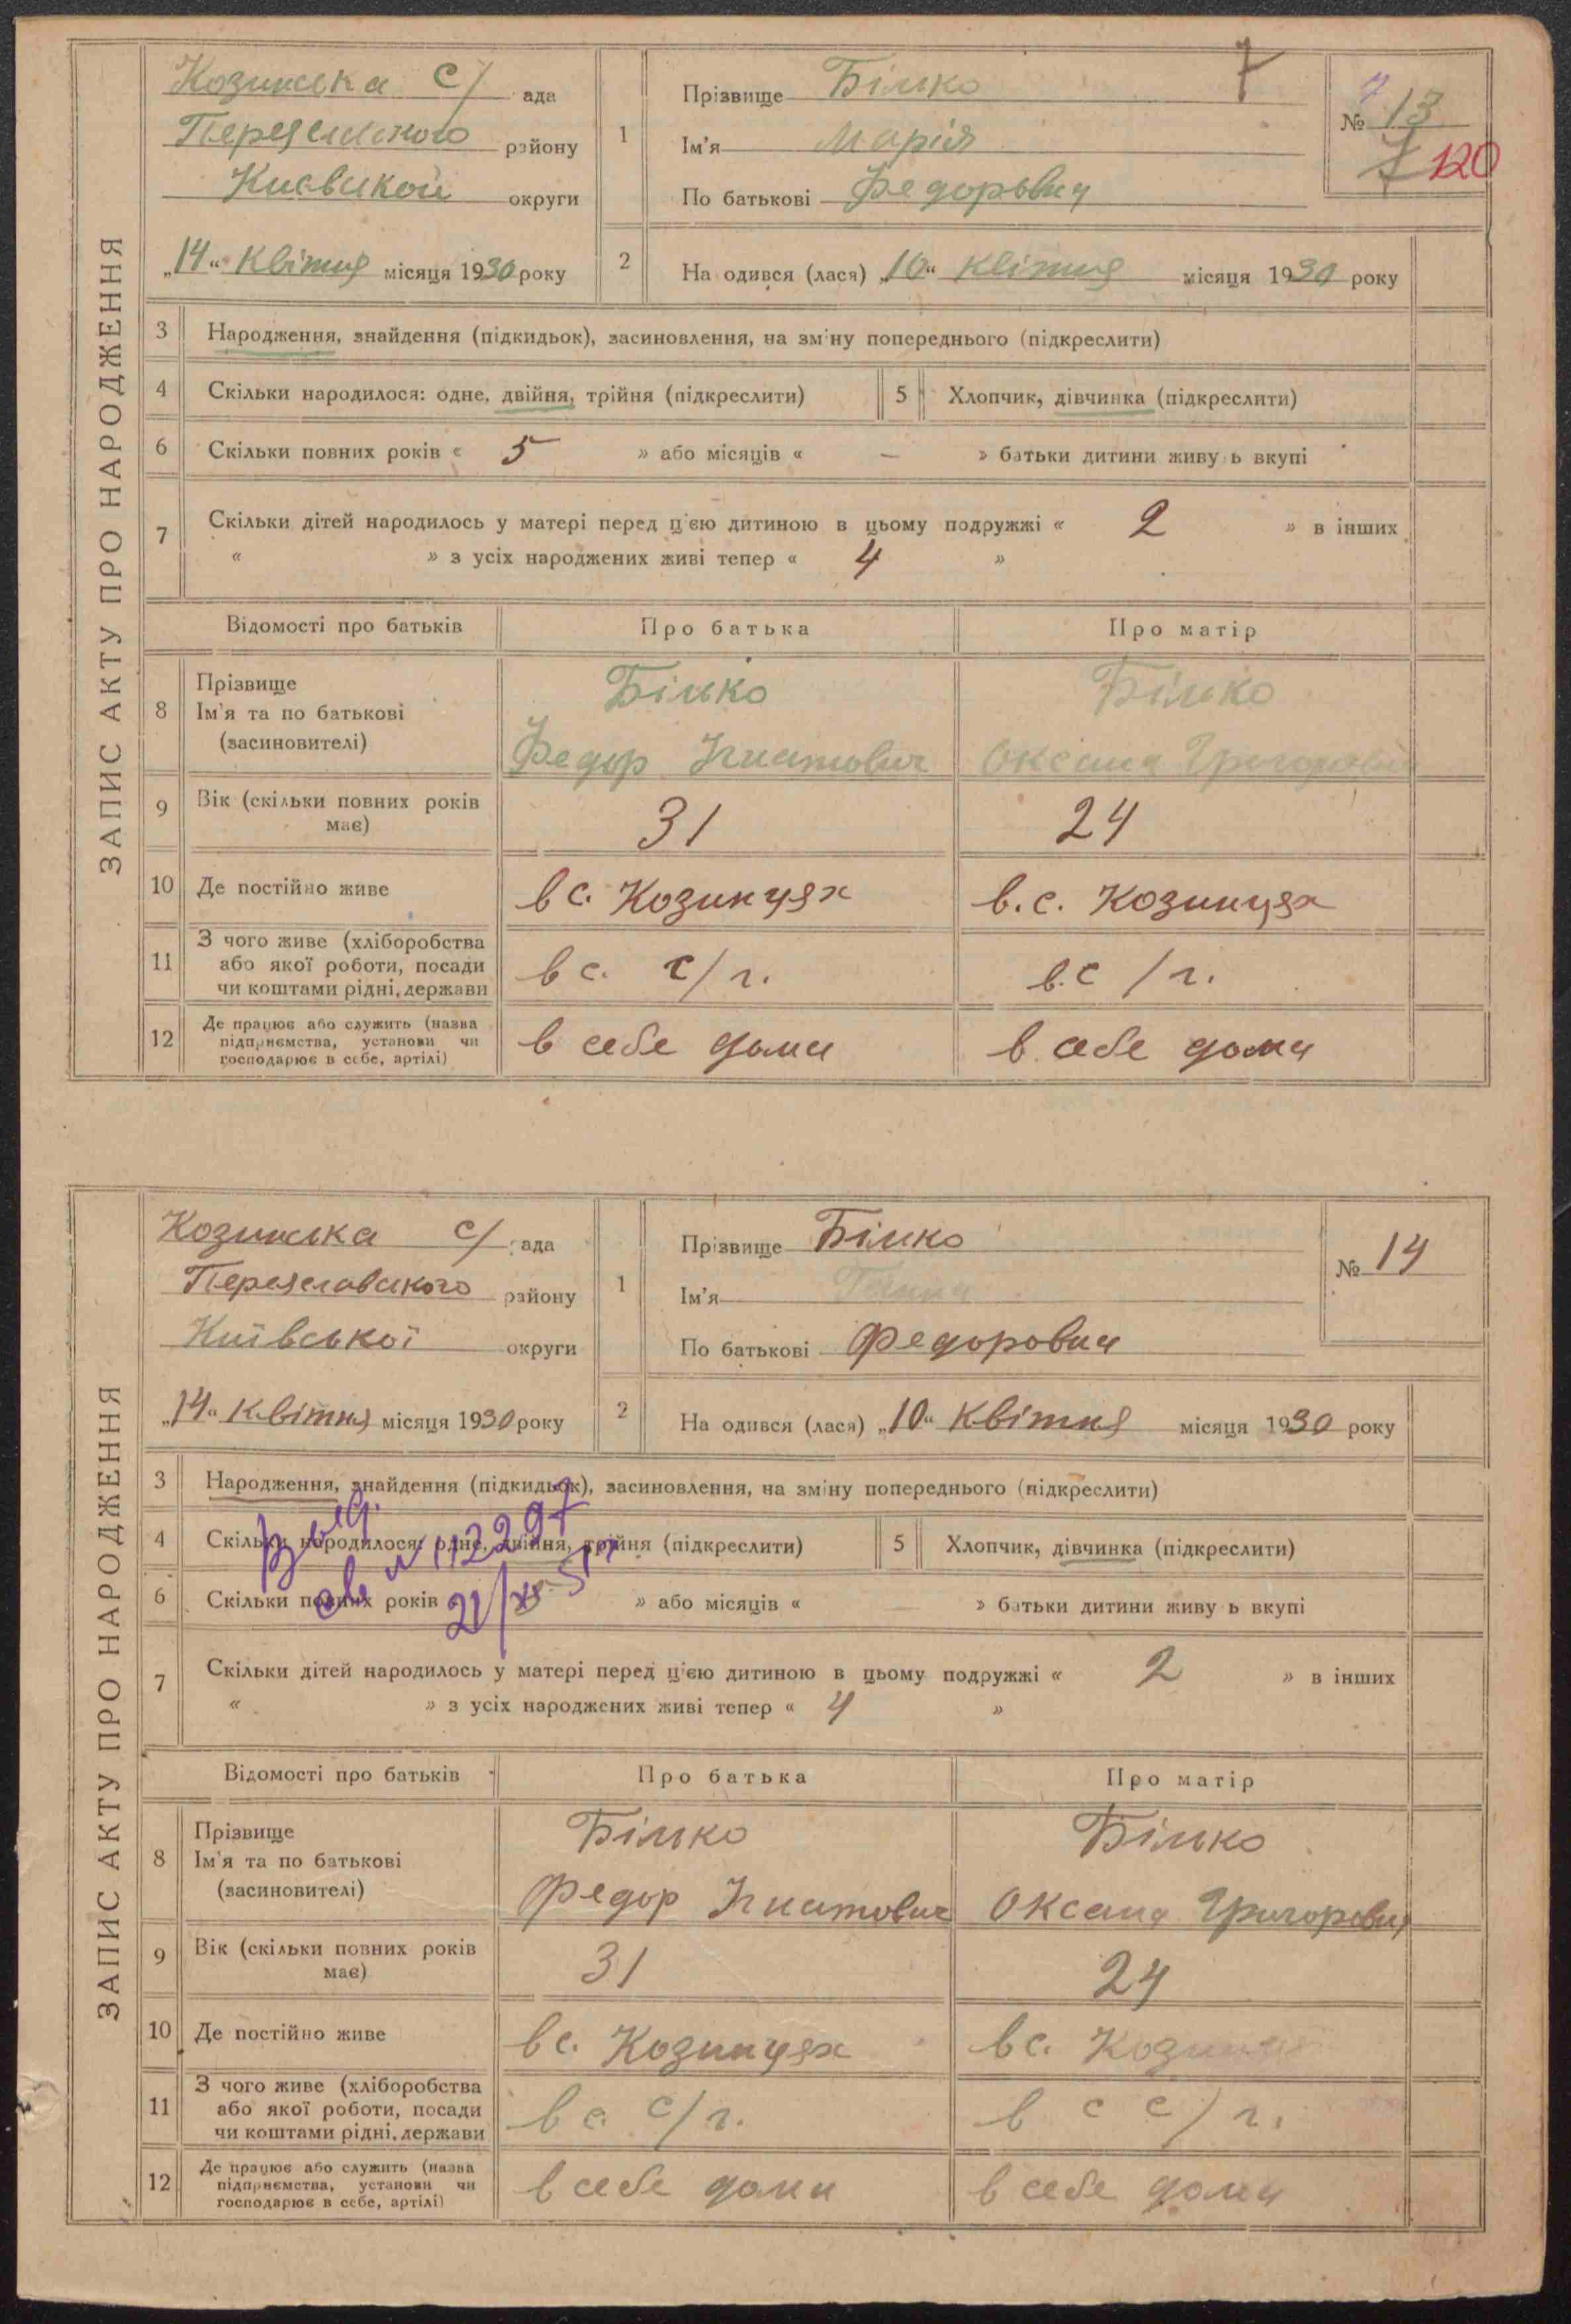 ЗАПИС АКТУ ПРО НАРОДЖЕННЯ
Козинська с/ рада
району
округи
„14“ Квітня місяця 1930 року
1
Прізвище Білько
Ім'я Марія
По батькові Федорович
№ 13
7
120
2 На одився (лася) „10“ Квітня місяця 1930 року
3 Народження, знайдення (підкидьок), засиновлення, на зміну попереднього (підкреслити)
4 Скільки народилося: одне, двійня, трійня (підкреслити) 5 Хлопчик, дівчинка (підкреслити)
6 Скільки повних років « 5 » або місяців « — » батьки дитини живу ь вкупі
7 Скільки дітей народилось у матері перед ц'єю дитиною в цьому подружжі « 2 » в інших
« » з усіх народжених живі тепер « 4 »
Відомості про батьків Про батька Про матір
8 Прізвище Ім'я та по батькові (засиновителі)
Білько Білько
Федор Ігнатович Оксана Григорович
9 Вік (скільки повних років має) 31 24
10 Де постійно живе в с. Козинцях в.с. Козинцях
11 З чого живе (хліборобства або якої роботи, посади чи коштами рідні, держави в с. с/г. в.с/г.
12 Де працює або служить (назва підприємства, установи чи господарює в себе, артілі) в себе дома в себе дома
ЗАПИС АКТУ ПРО НАРОДЖЕННЯ
Козинська с/ рада
Переяславського району
Київської округи
„14“ Квітня місяця 1930 року
1
Прізвище Білько
Ім'я Ганна
По батькові Федорович
№ 14
2 На одився (лася) „10“ Квітня місяця 1930 року
3 Народження, знайдення (підкидьок), засиновлення, на зміну попереднього (підкреслити)
4 Скільки народилося: одне, двійня, трійня (підкреслити) 5 Хлопчик, дівчинка (підкреслити)
6 Скільки повних років » або місяців « — » батьки дитини живу ь вкупі
7 Скільки дітей народилось у матері перед ц'єю дитиною в цьому подружжі « 2 » в інших
« » з усіх народжених живі тепер « 4 »
Відомості про батьків Про батька Про матір
8 Прізвище Ім'я та по батькові (засиновителі)
Білько Білько
Федор Ігнатович Оксана Григорович
9 Вік (скільки повних років має) 31 24
10 Де постійно живе в с. Козинцях в с. Козинцях
11 З чого живе (хліборобства або якої роботи, посади чи коштами рідні, держави в с. с/г. в с с/г.
12 Де працює або служить (назва підприємства, установи чи господарює в себе, артілі) в себе дома в себе дома